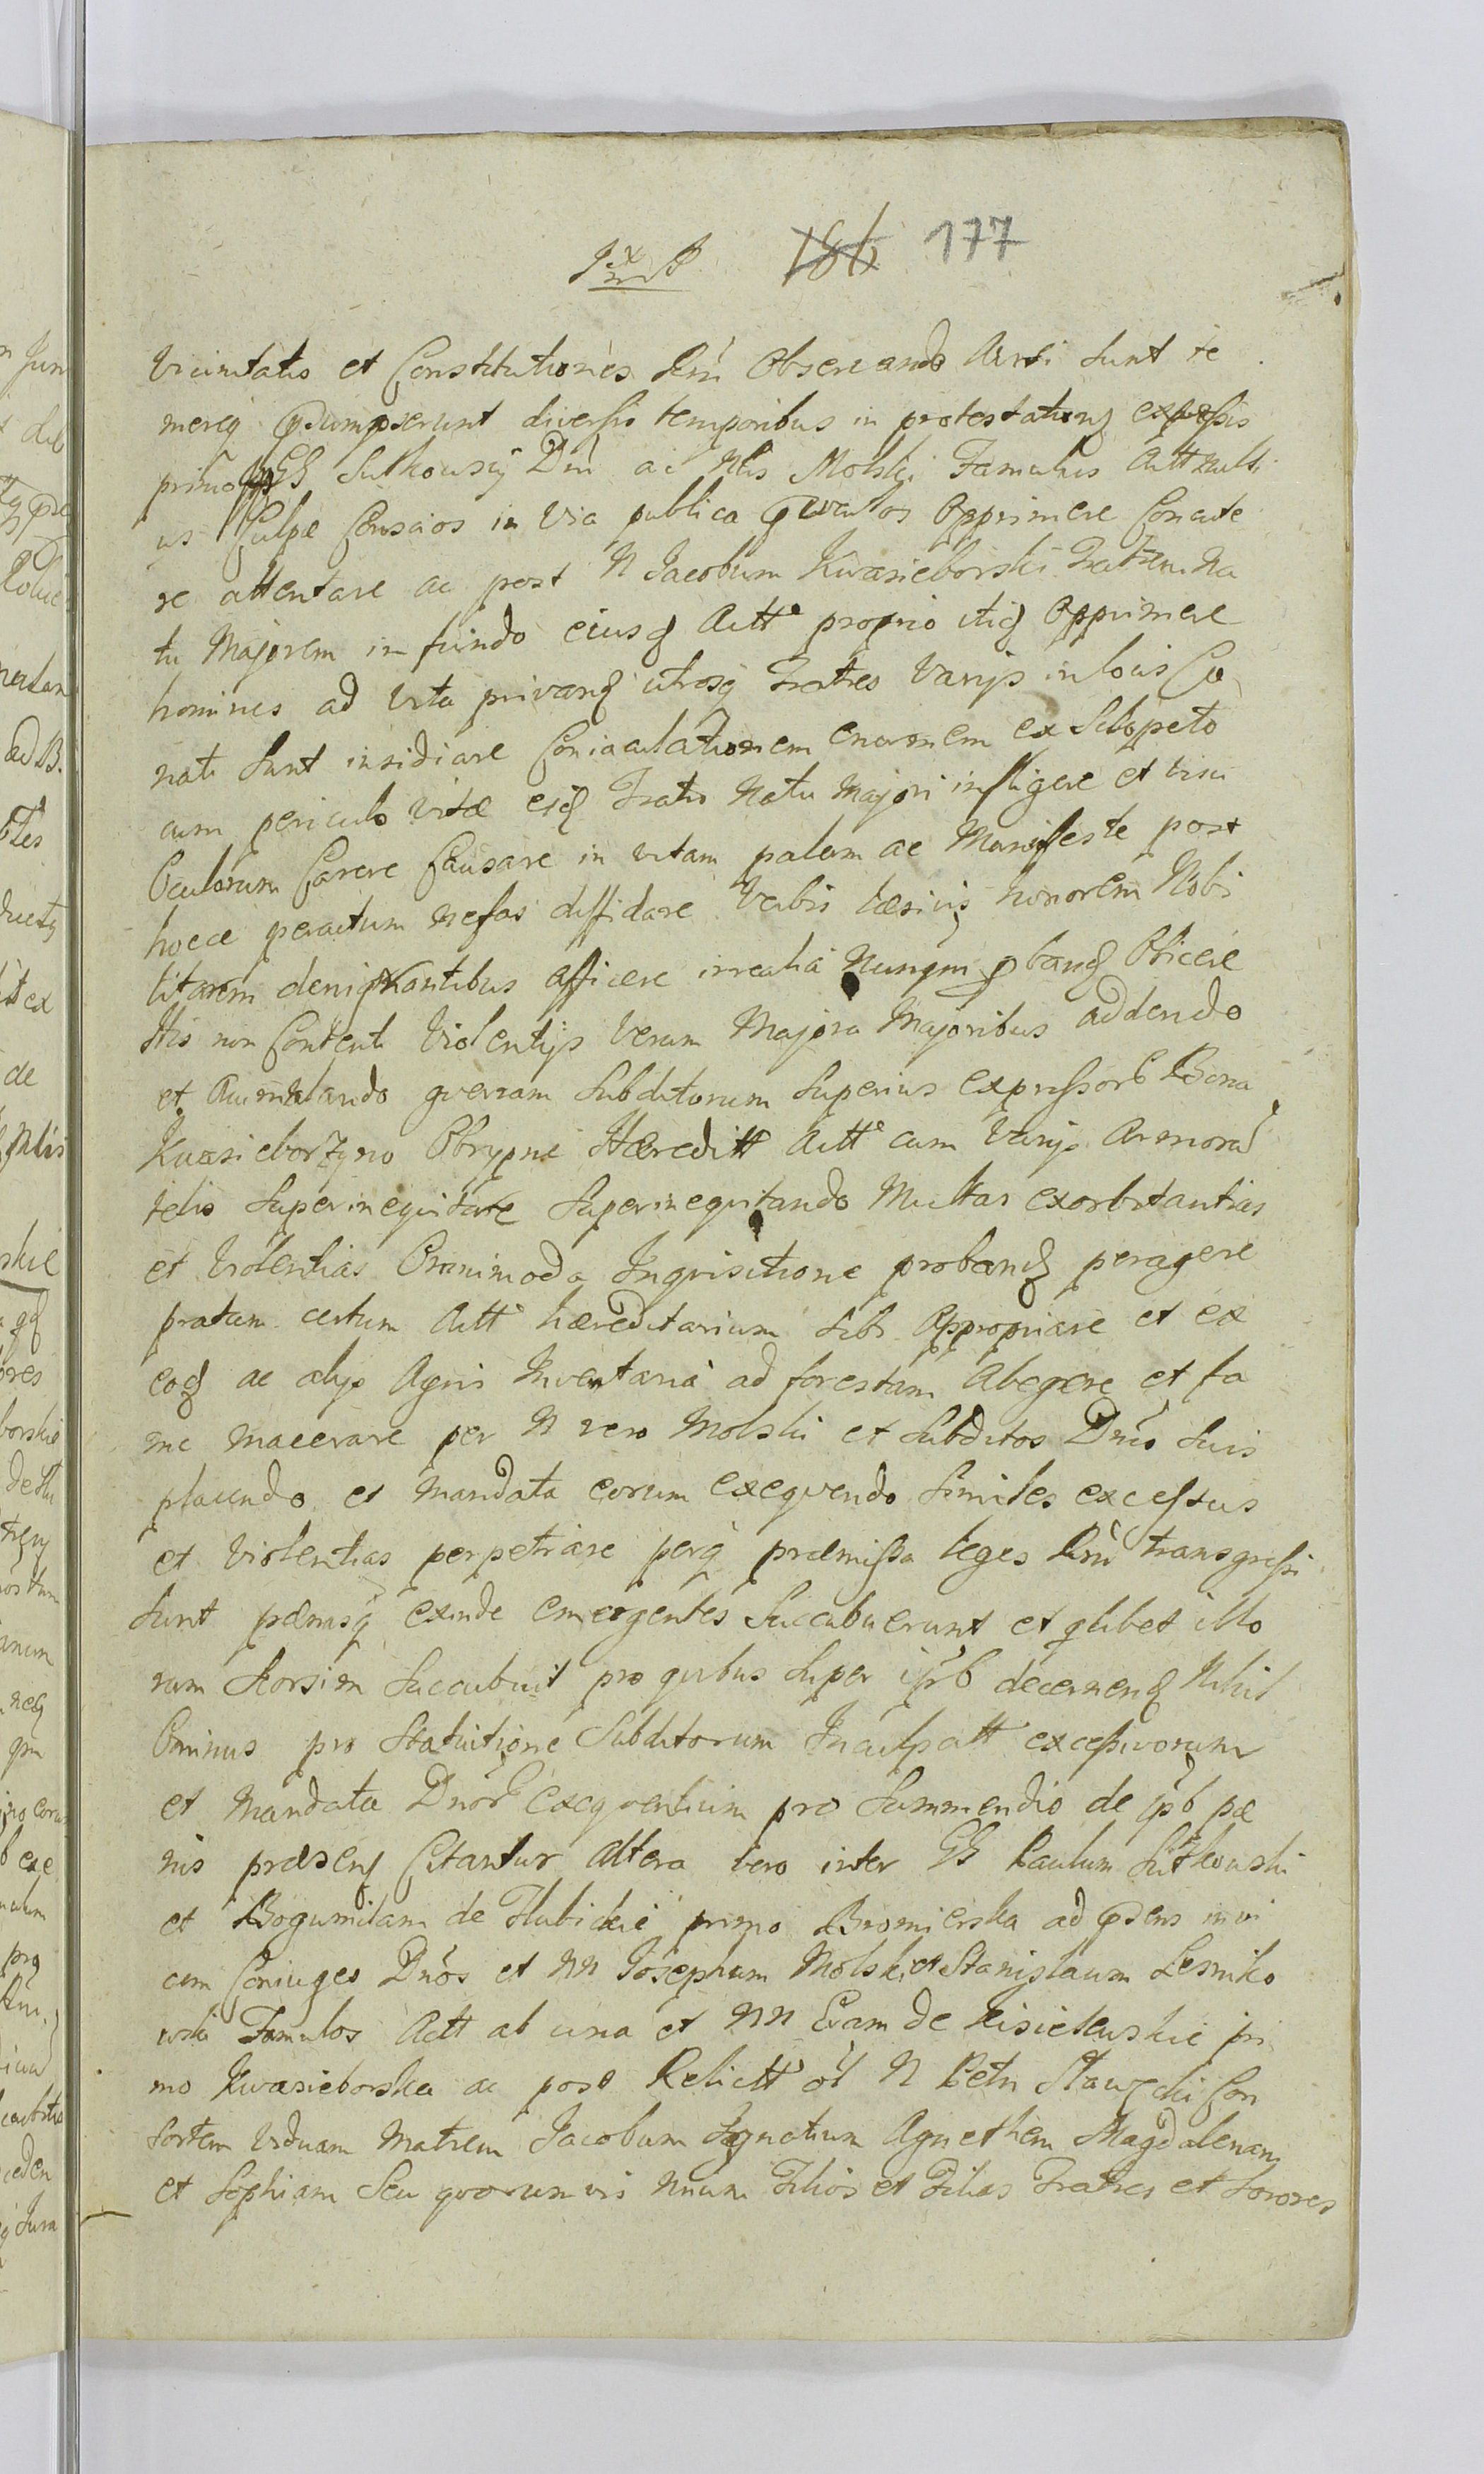 177
Vicinitatis et Constitutiones Rni Observando Ausi sunt te
mereq praesumpserunt diversis temporibus in protestationq expressis
primo GG Sutkowscy Dni ac Nlis Molski Famulus Actt nulli
us Culpae Conscios in via publica opprimere Concute
re attentare ac post N Jacobum Kwasieborski Fratrem Na
tu Majorem in fundo eiusq Actt proprio itiq Opprimere
homines ad vita privanq utrosq Fratres Varijs in locis Co
nati sunt insidiare Coniaculationem enormem ex Sclopeto
cum periculo vitae eiq Fratri Natu Majori infligere et visu
Oculorum Carere Causare in vitam palam ac Manifeste post
hocce peractum nefas diffidare Verbis laesivis honorem Nobi
litarem denigrantibus afficere irrealia Nunqm pbanq Obicere
His non Contenti Violentijs Verum Majora Majoribus addendo
et Accumulando gverram Subditorum Superius expressorb Bona
Kwasieborzyno Obrypne Haereditt Actt cum Varijs Armorum
telis Superinequitare Superinequitando Multas exorbitantias
et Violentias Omnimoda Inqvisitione probanq peragere
pratum certum Actt haereditarium Sibi Appropriare et ex
eoq ac alijs Agris Inventaria ad forestam Abegere et fa
me macerare per N vero Molski et Subditos Dnis suis
placendo et Mandata eorum exeqvendo Similes excessus
et Violentias perpetrare perq praemissa leges Rni transgressi
sunt paenasq exinde emergentes Succubuerunt et qlibet illo
rum Seorsim Succubuit pro qvibus Super ipsb decernenq Nihil
Ominus pro Statuitione Subditorum Inculpatt excessivorum
et Mandata Dnorb exeqventium pro Summendis de ipsb pae
nis praesenq Citantur altera vero inter GG Paulum Sutkowski
et Bogumilam de Hlubickie primo Bromierska ad praesens invi
cem Coniuges Dnos et NN Josephum Molski et Stanislaum Lesniko
wski Famulos Actt ab una et NN Evam de Kisielewskie pri
mo Kwasieborska ac post Relictt ol N Petri Stawecki Con
sortem Viduam Matrem Jacobum Ignatium Agnethem Magdalenam
et Sophiam Seu qvorumvis Nnum Filios et Filias Fratres et Sorores